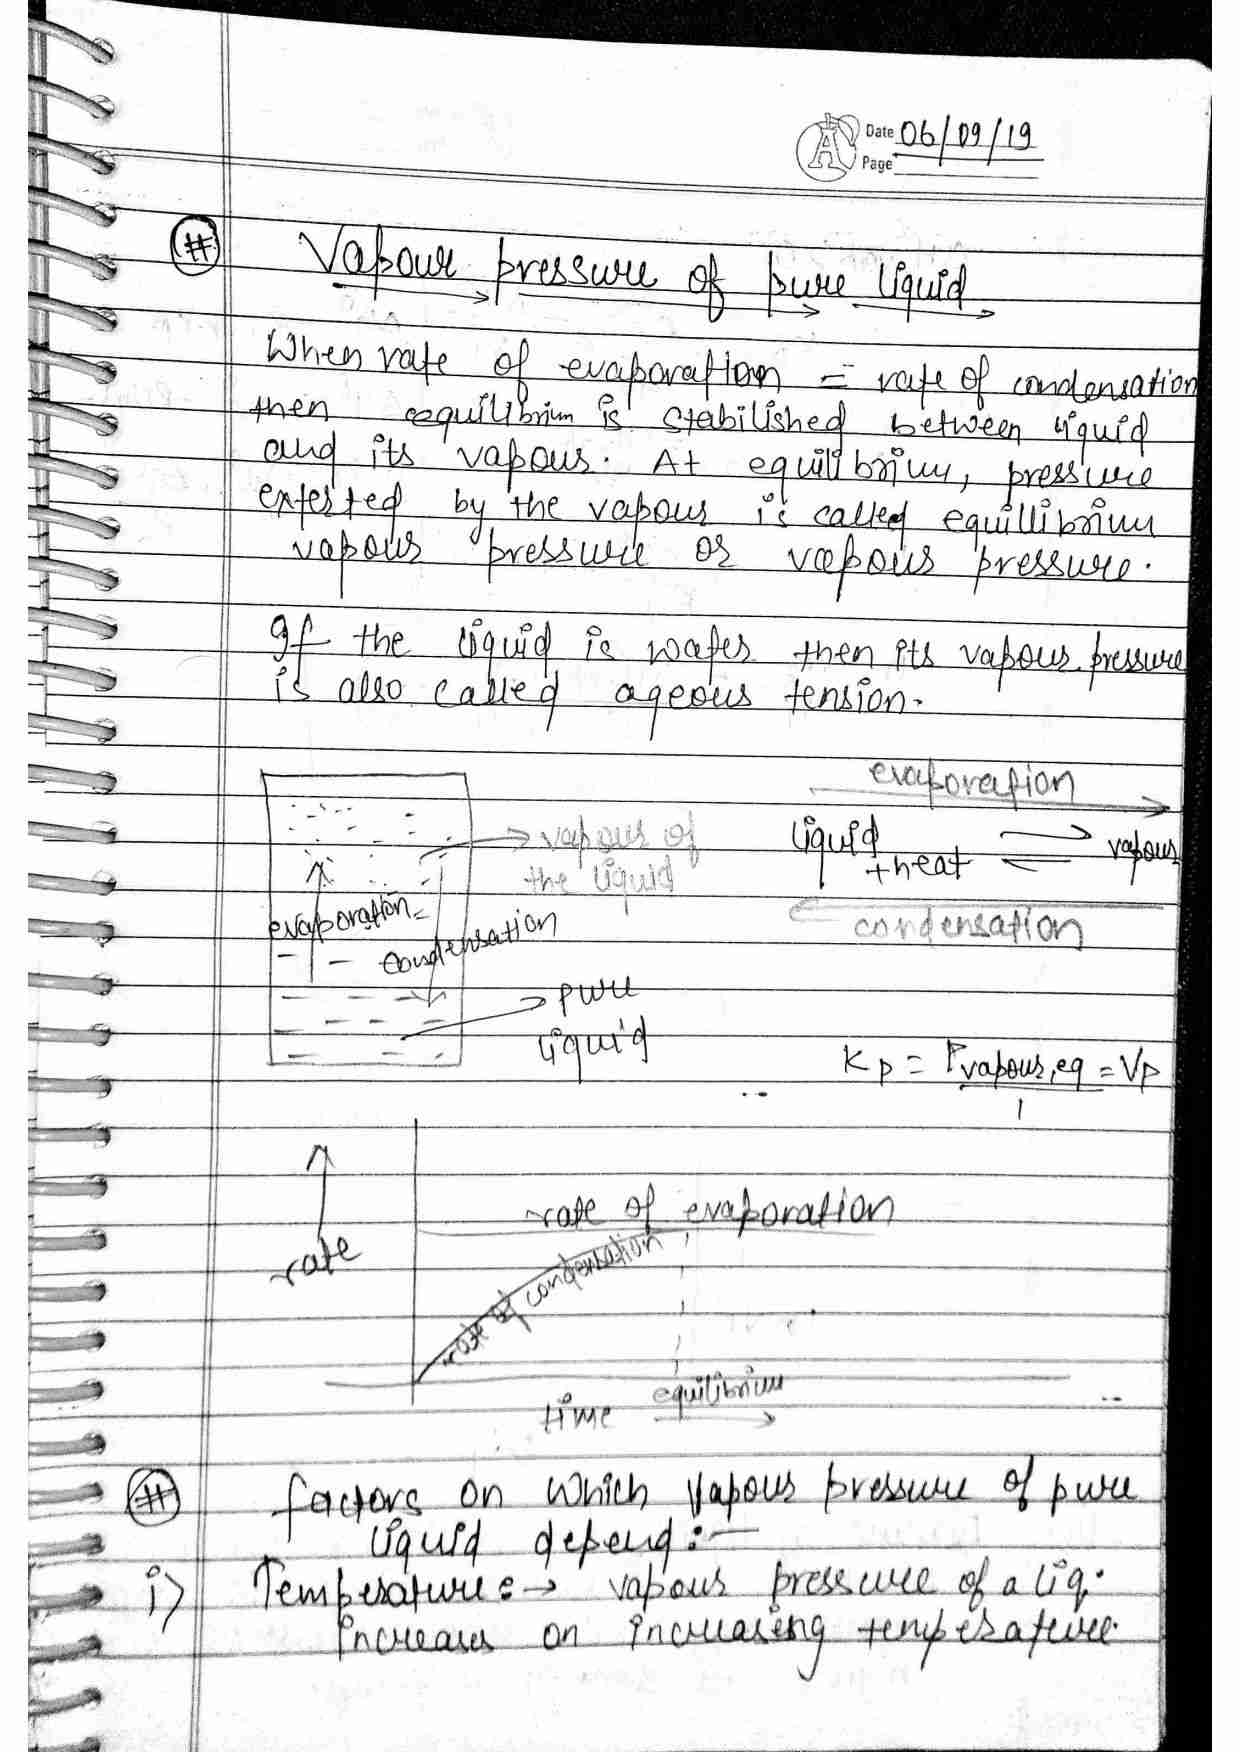 Date 06/09/19
Page
# Vapour pressure of pure liquid
When rate of evaporation = rate of condensation
then eequilibrium is stabilished between liquid
and its vapour. At equilibrium, pressure
exerted by the vapour is called equillibrium
vapour pressure or vapour pressure.
If the liquid is water then its vapour pressure
is also called aqeous tension.
evaporation
vapour of
the liquid
liquid
+heat ⇌ vapour
condensation
evaporation =
condensation
pure
liquid
Kp = Pvapour,eq/1 = Vp
rate
rate of evaporation
rate of condensation
equilibrium
time
# factors on which vapour pressure of pure
liquid depend:-
i) Temperature:→ vapour pressure of a liq.
increases on increasing temperature.